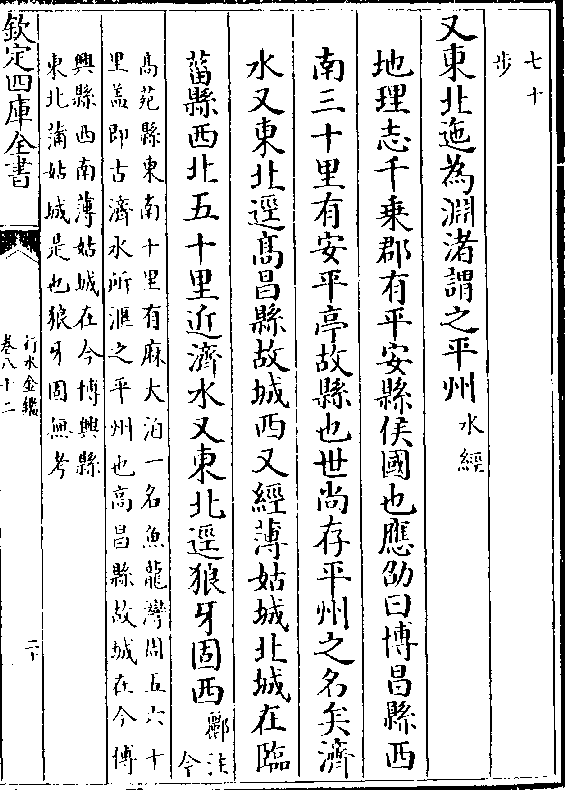 七十
步
又東北迤為淵渚謂之平州水經
地理志千乗郡有平安縣侯國也應劭曰博昌縣西
南三十里有安平亭故縣也世尚存平州之名矣濟
水又東北逕髙昌縣故城西又經薄姑城北城在臨
菑縣西北五十里近濟水又東北逕狼牙固西酈注
今
髙苑縣東南十里有麻大泊一名魚龍灣周五六十
里盖即古濟水所滙之平州也高昌縣故城在今博
興縣西南薄姑城在今博興縣
東北蒲姑城是也狼牙固無考
欽定四庫全書
行水金鑑
卷八十二
二十